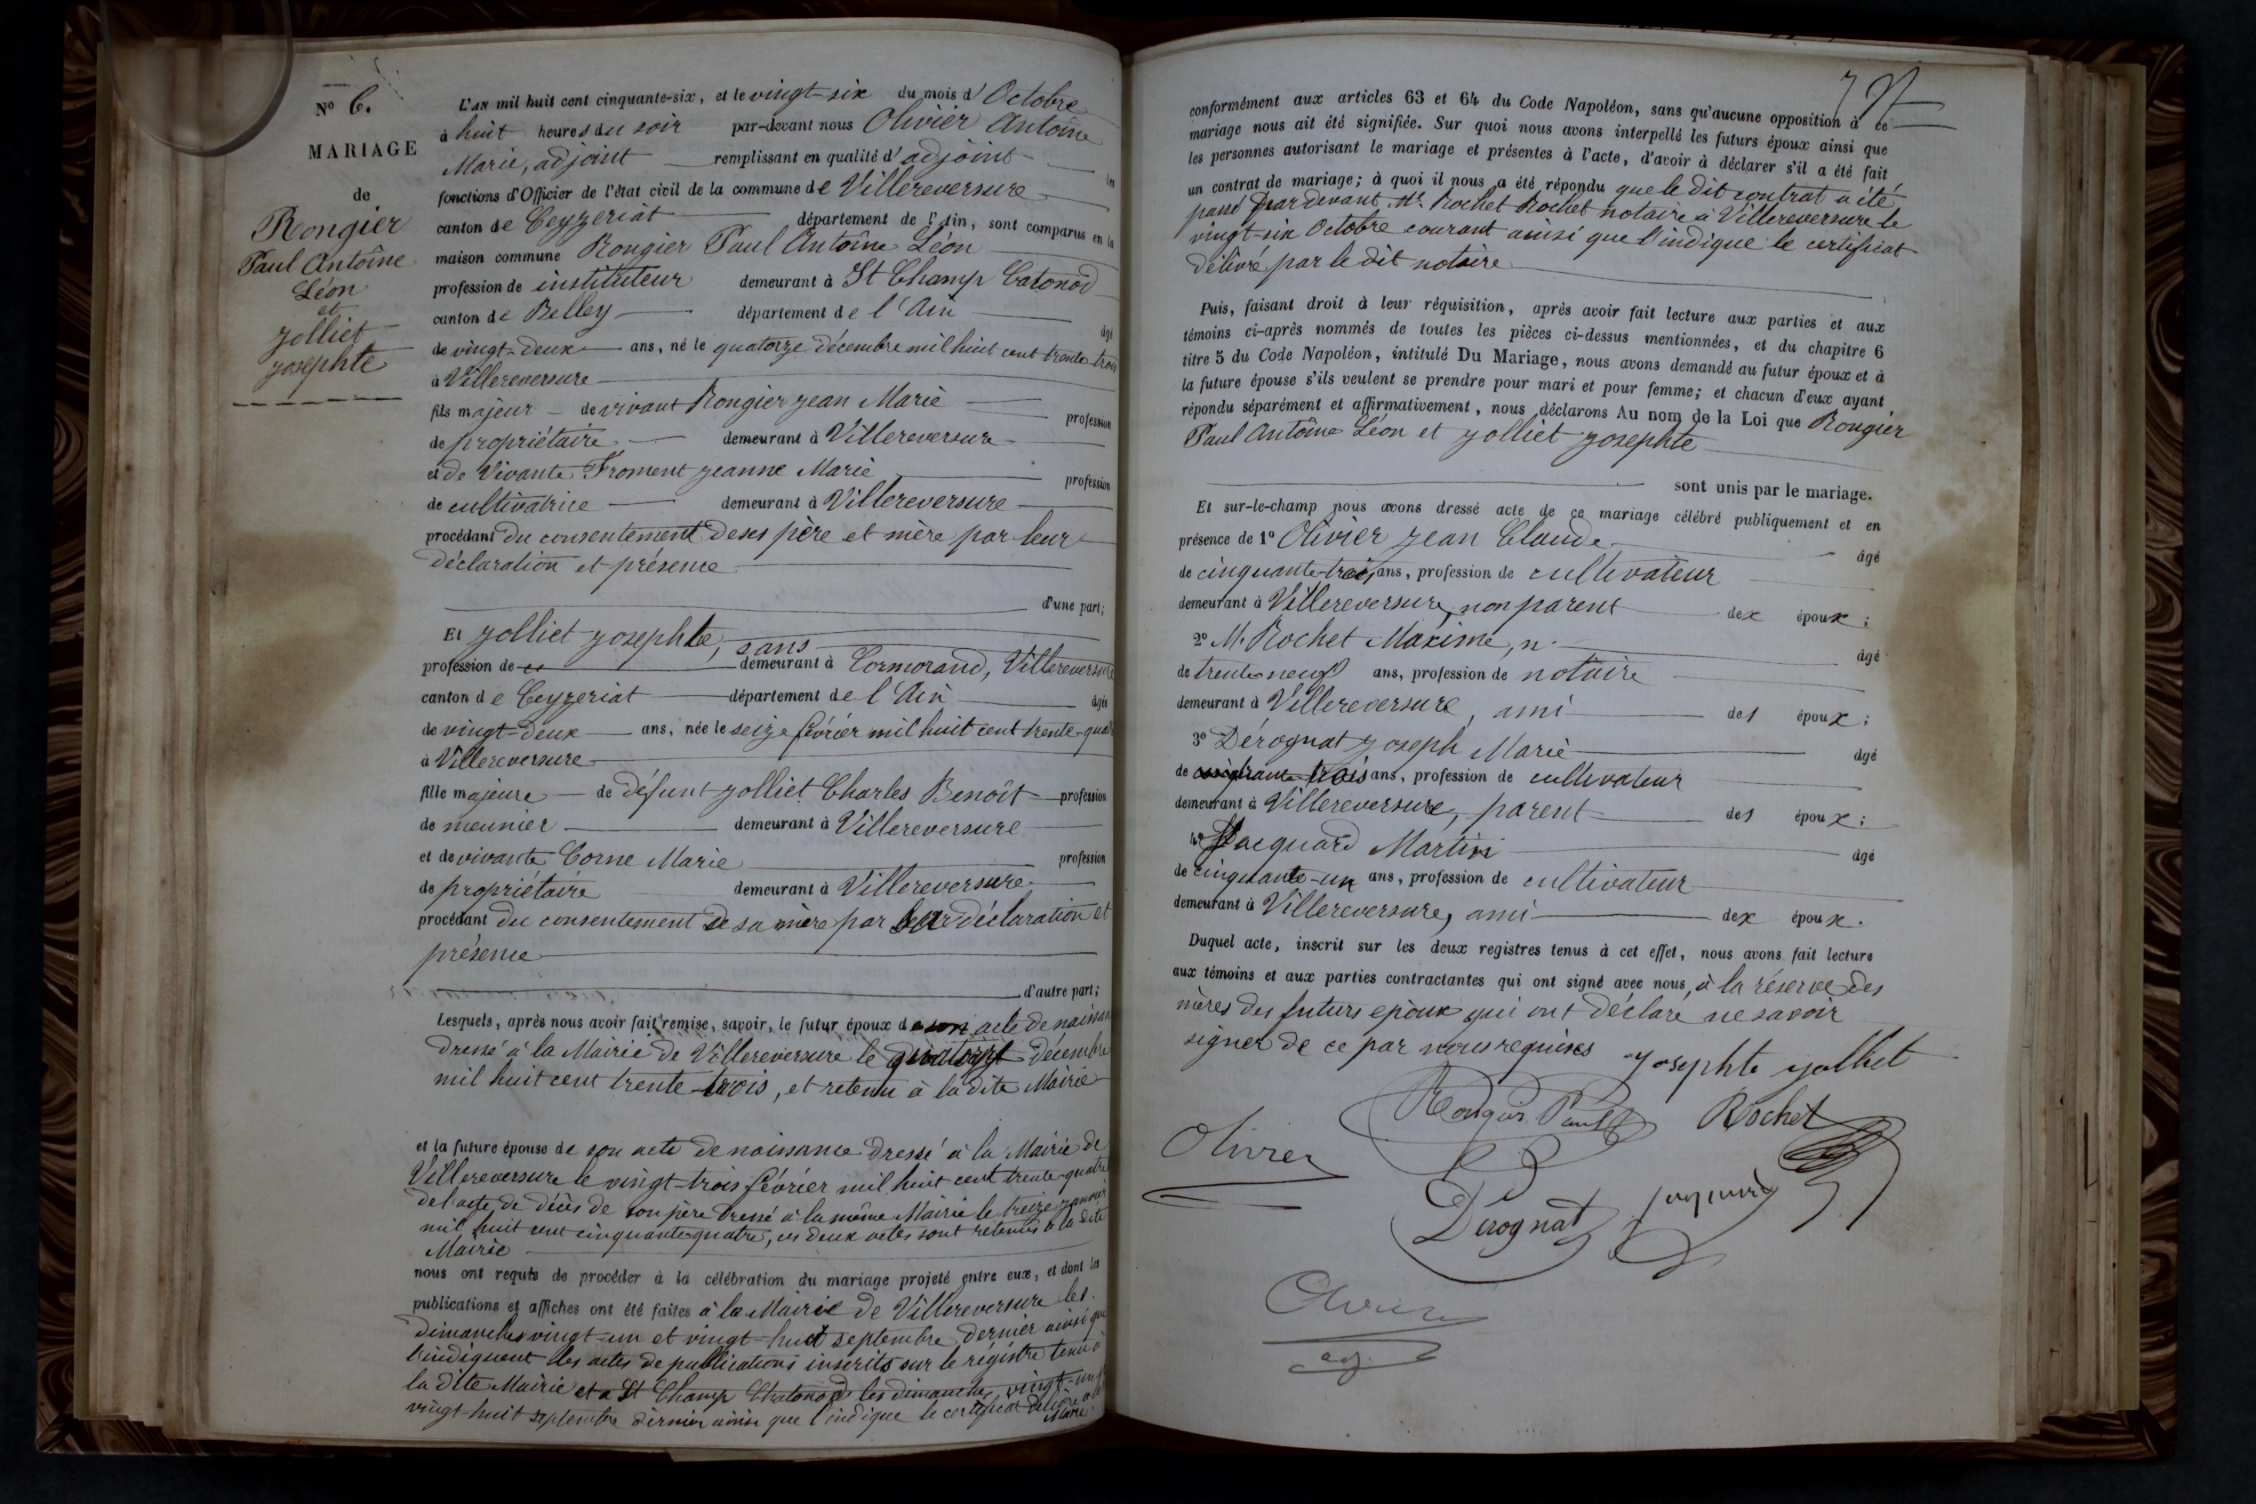 N° 6.
MARIAGE
de
Rougier
Paul Antoine
Léon
et
Jolliet
Josephte
L'an mil huit cent cinquante-six, et le vingt-six du mois d'Octobre
à huit heures du soir par-devant nous Olivier Antoine
Marie, adjoint remplissant en qualité d'adjoint les
fonctions d'Officier de l'état civil de la commune de Villereversure
canton de Ceyzeriat département de l'Ain, sont comparus en la
maison commune Rougier Paul Antoine Léon
profession de instituteur demeurant à St Champ Catonod
canton de Belley département de l'Ain âgé
de vingt-deux ans, né le quatorze décembre mil huit cent trente-trois
à Villereversure
fils majeur de vivant Rougier Jean Marie profession
de propriétaire demeurant à Villereversure
et de Vivante Froment Jeanne Marie profession
de cultivatrice demeurant à Villereversure
procédant du consentement de ses père et mère par leur
déclaration et présence
d'une part;
Et Jolliet Josephte, sans
profession de demeurant à Cormorand, Villereversure
canton de Ceyzeriat département de l'Ain âgée
de vingt-deux ans, née le seize février mil huit cent trente-quatre
à Villereversure
fille majeure de défunt Jolliet Charles Benoît profession
de meunier demeurant à Villereversure
et de vivante Corne Marie profession
de propriétaire demeurant à Villereversure
procédant du consentement de sa mère par déclaration et
présence
d'autre part;
Lesquels, après nous avoir fait remise, savoir, le futur époux de son acte de naissance
dressé à la Mairie de Villereversure le quatorze décembre
mil huit cent trente-trois, et retenu à la dite Mairie
et la future épouse de son acte de naissance dressé à la Mairie de
Villereversure le vingt-trois février mil huit cent trente-quatre
de l'acte de décès de son père dressé à la même Mairie le treize janvier
mil huit cent cinquante quatre, ces deux actes sont retenus à la dite
Mairie
nous ont requis de procéder à la célébration du mariage projeté entre eux, et dont les
publications et affiches ont été faites à la Mairie de Villereversure les
dimanches vingt-un et vingt-huit septembre dernier ainsi que
l'indiquent les actes de publications inscrits sur le régistre tenu à
la dite Mairie et à St Champ Chatonod les dimanches vingt-un
vingt-huit septembre dernier ainsi que l'indique le certificat délivré
Mairie
conformément aux articles 63 et 64 du Code Napoléon, sans qu'aucune opposition à ce
mariage nous ait été signifiée. Sur quoi nous avons interpellé les futurs époux ainsi que
les personnes autorisant le mariage et présentes à l'acte, d'avoir à déclarer s'il a été fait
un contrat de mariage; à quoi il nous a été répondu que le dit contrat a été
passé pardevant Me. Rochet Rochet notaire à Villereversure le
vingt-six Octobre courant ainsi que l'indique le certificat
délivré par le dit notaire
Puis, faisant droit à leur réquisition, après avoir fait lecture aux parties et aux
témoins ci-après nommés de toutes les pièces ci-dessus mentionnées, et du chapitre 6
titre 5 du Code Napoléon, intitulé Du Mariage, nous avons demandé au futur époux et à
la future épouse s'ils veulent se prendre pour mari et pour femme; et chacun d'eux ayant
répondu séparément et affirmativement, nous déclarons Au nom de la Loi que Rougier
Paul Antoine Léon et Jolliet Josephte
sont unis par le mariage.
Et sur-le-champ nous avons dressé acte de ce mariage célébré publiquement et en
présence de 1° Olivier Jean Claude âgé
de cinquante-trois ans, profession de cultivateur
demeurant à Villereversure, non parent dex époux;
2° M. Rochet Maxime, n. âgé
de trente-neuf ans, profession de notaire
demeurant à Villereversure, ami des époux;
3° Dérognat Joseph Marie âgé
de trois ans, profession de cultivateur
demeurant à Villereversure, parent des époux;
4° Jacquard Martin âgé
de cinquante-un ans, profession de cultivateur
demeurant à Villereversure, ami dex époux.
Duquel acte, inscrit sur les deux registres tenus à cet effet, nous avons fait lecture
aux témoins et aux parties contractantes qui ont signé avec nous, à la réserve des
mères des futurs époux qui ont déclaré ne savoir
signer de ce par nous requises
Josephte Jolliet
Rougier Paul Rochet
Olivier
Dérognat Jacquard
Olivier
adj.